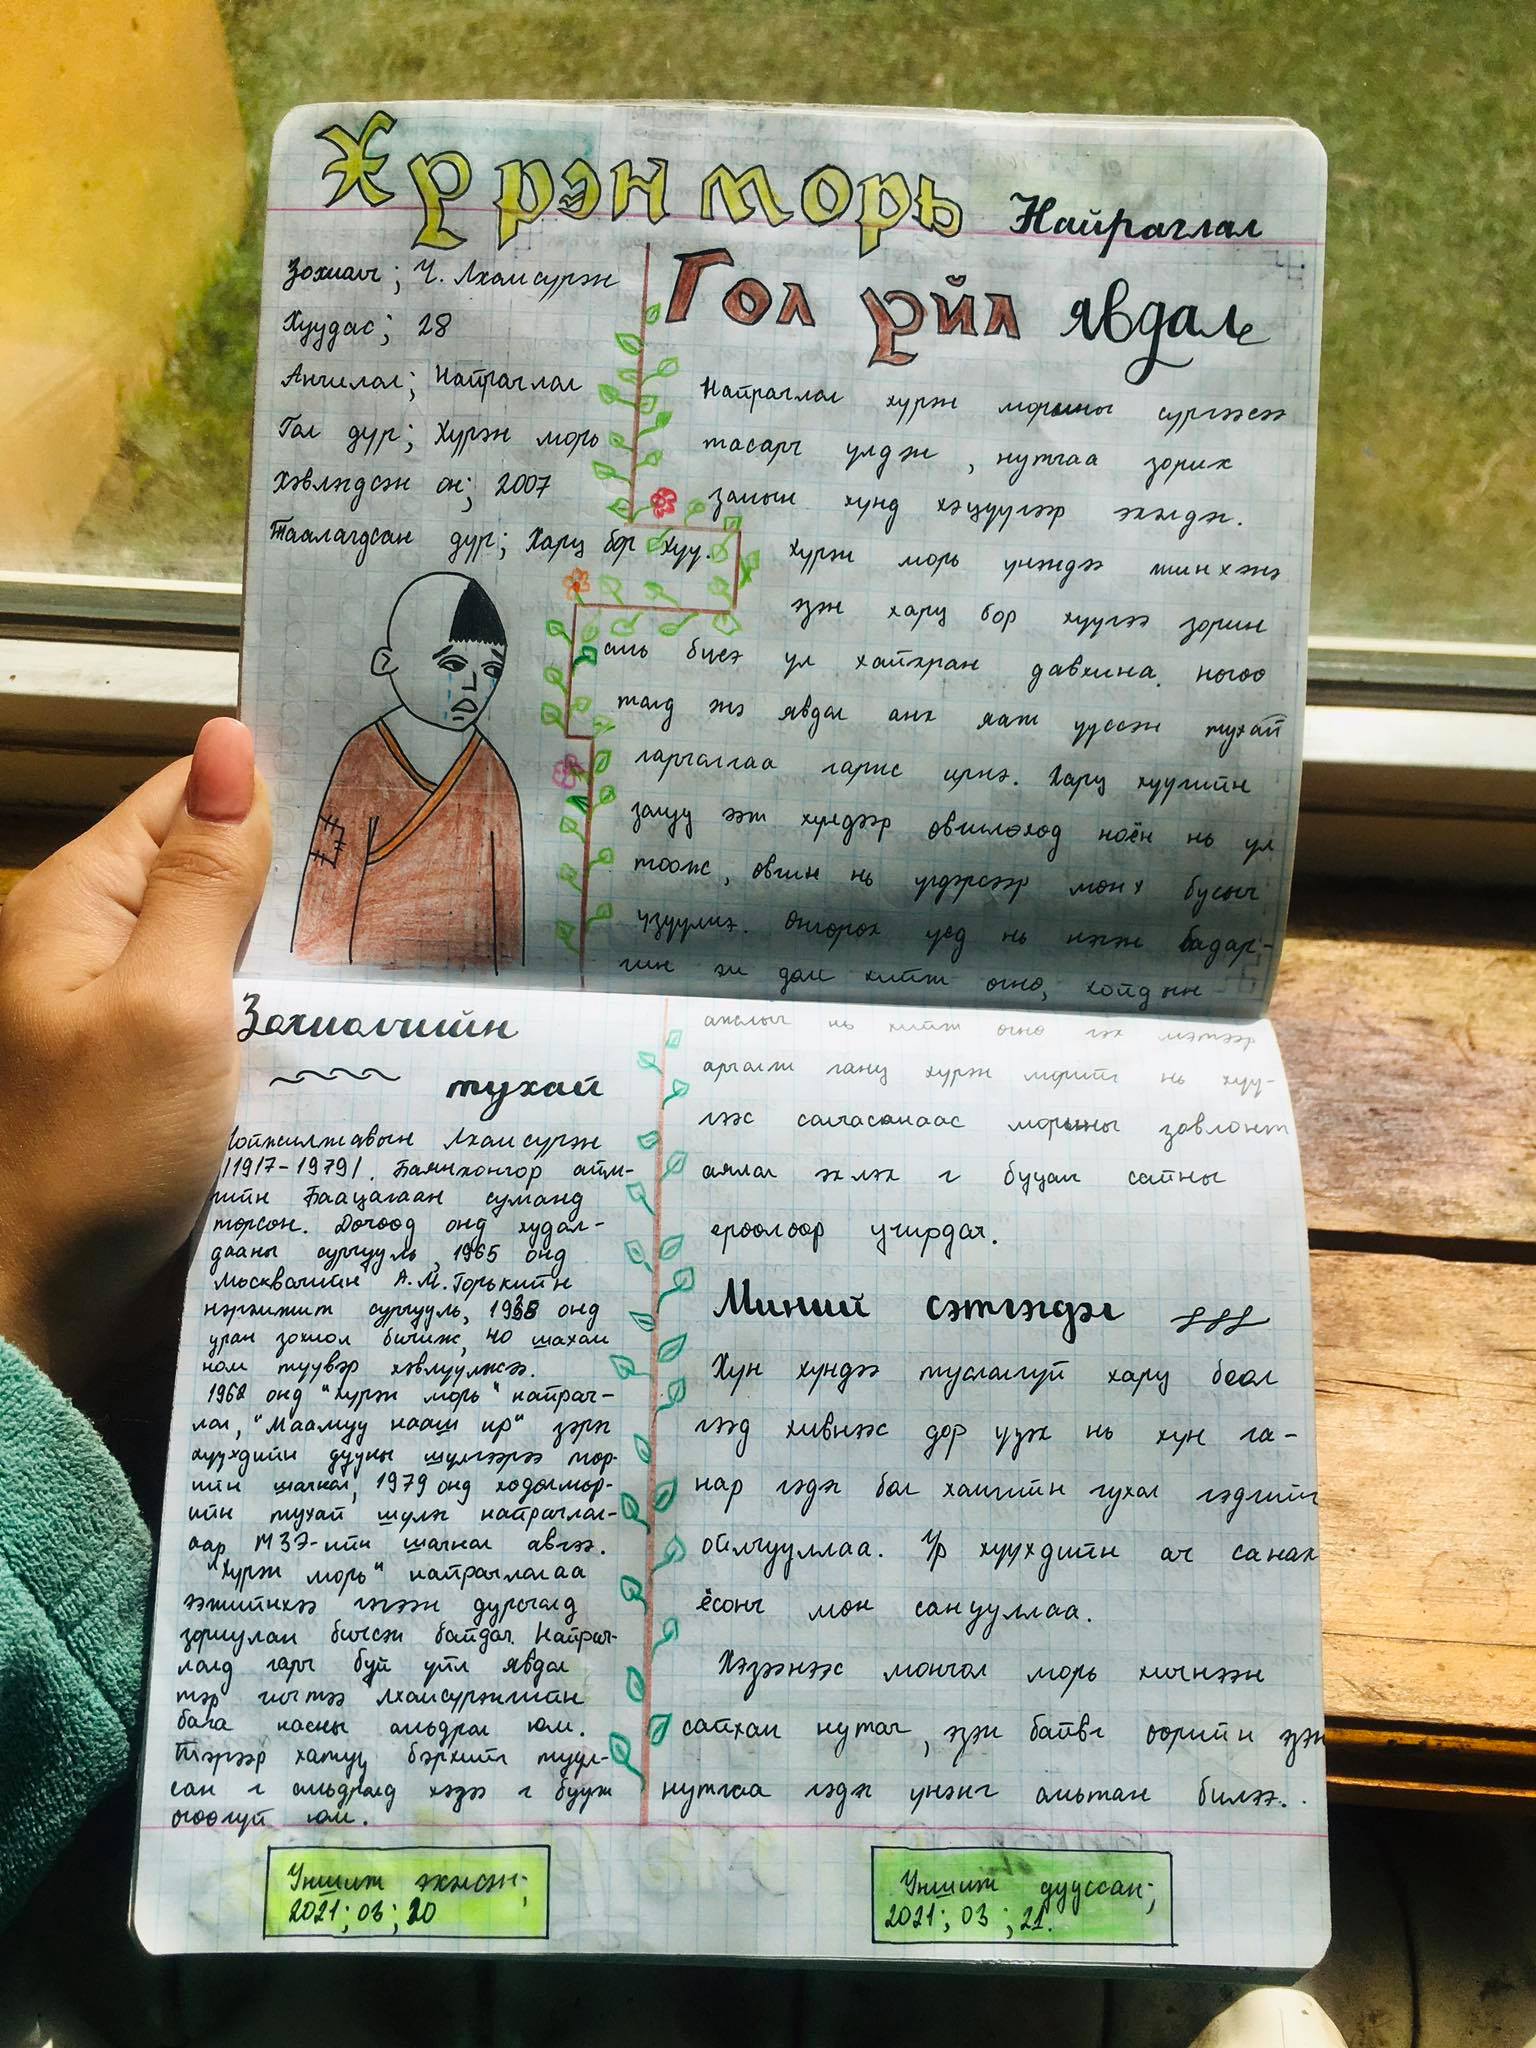 Хүрэн морь Найраглал
Зохиолч; Ч. Лхамсүрэн
Хуудас; 28
Ангилал; Найраглал
Гол дүр; Хүрэн морь
Хэвлэгдсэн он; 2007
Таалагдсан дүр; Харц бор хүү.
Гол үйл явдал
Найраглал хүрэн морины сүргээсээ
тасарч үлдэн, нутгаа зорих
замын хүнд хэцүүгээр эхэлдэг.
Хүрэн морь үнэндээ жинхэнэ
эзэн харц бор хүүгээ зорин
амь бүсээ үл хайхран давхина. Ногоо
талд энэ явдал анх яаж үүссэн тухай
гаргалгаа гарж ирнэ. Харц хүүгийн
залуу ээж хүндээр өвчлөхөд ноён нь үл
тоож, өвчин нь үгдэрсээр мөнх бусыг
үзүүлнэ. Өнгөрөх үед нь нэгэн бадар-
чин эм дом хийж өгнө, хойдын
ажлыг нь хийж өгнө гэх мэтээр
аргалж ганц хүрэн морийг нь хүү-
гээс салгаснаас морины зовлонт
аялал эхлэх ч буцаж сайны
ерөөлөөр учирдаг.
Зохиолчийн
тухай
Чойжилжавын Лхамсүрэн
/1917-1979/. Баянхонгор айм-
гийн Баацагаан суманд
төрсөн. Дөчөөд онд худал-
дааны сургууль, 1965 онд
Москвагийн А.М.Горькийн
нэрэмжит сургууль, онд
уран зохиол бичиж, 40 шахам
ном түүвэр хэвлүүлжээ.
1962 онд "Хүрэн морь" найраг-
лал, "Маамуу нааш ир" зэрэг
хүүхдийн дууны шүлгээрээ төр-
ийн шагнал, 1979 онд хөдөлмөр-
ийн тухай шүлэг найраглал-
аар МЗЭ-ийн шагнал авчээ.
"Хүрэн морь" найраглалаа
ээжийнхээ гэгээн дурсгалд
зориулан бичсэн байдаг. Найраг-
лалд гарч буй үйл явдал
тэр чигтээ Лхамсүрэнгийн
бага насны амьдрал юм.
Тэгээр хатуу бэрхийг туул-
сан ч амьдралд хэзээ ч бууж
өгөөгүй юм.
Миний сэтгэгдэл
Хүн хүндээ туслалгүй харц боол
гээд хивнээс дор үзэх нь хүн га-
нар гэдэг бол хамгийн чухал гэдгийг
ойлгууллаа. Үр хүүхдийн ач санах
ёсонч мөн сануулаа.
Хэзээнээс монгол морь хичнээн
сайхан нутаг, эзэн байвч өөрийн эзэн
нутгаа гэдэг үнэнч амьтан билээ..
Уншиж эхэлсэн;
2021; 03; 20
Уншиж дууссан;
2021; 03; 21.